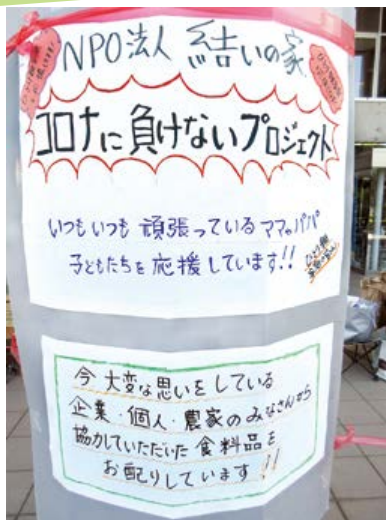 NPO法人 結いの家
コロナに負けないプロジェクト
いつもいつも 頑張っているママやパパ
子どもたちを応援しています!!
今 大変な思いをしている
企業・個人・農家のみなさんから
協力していただいた食料品を
お配りしています!!